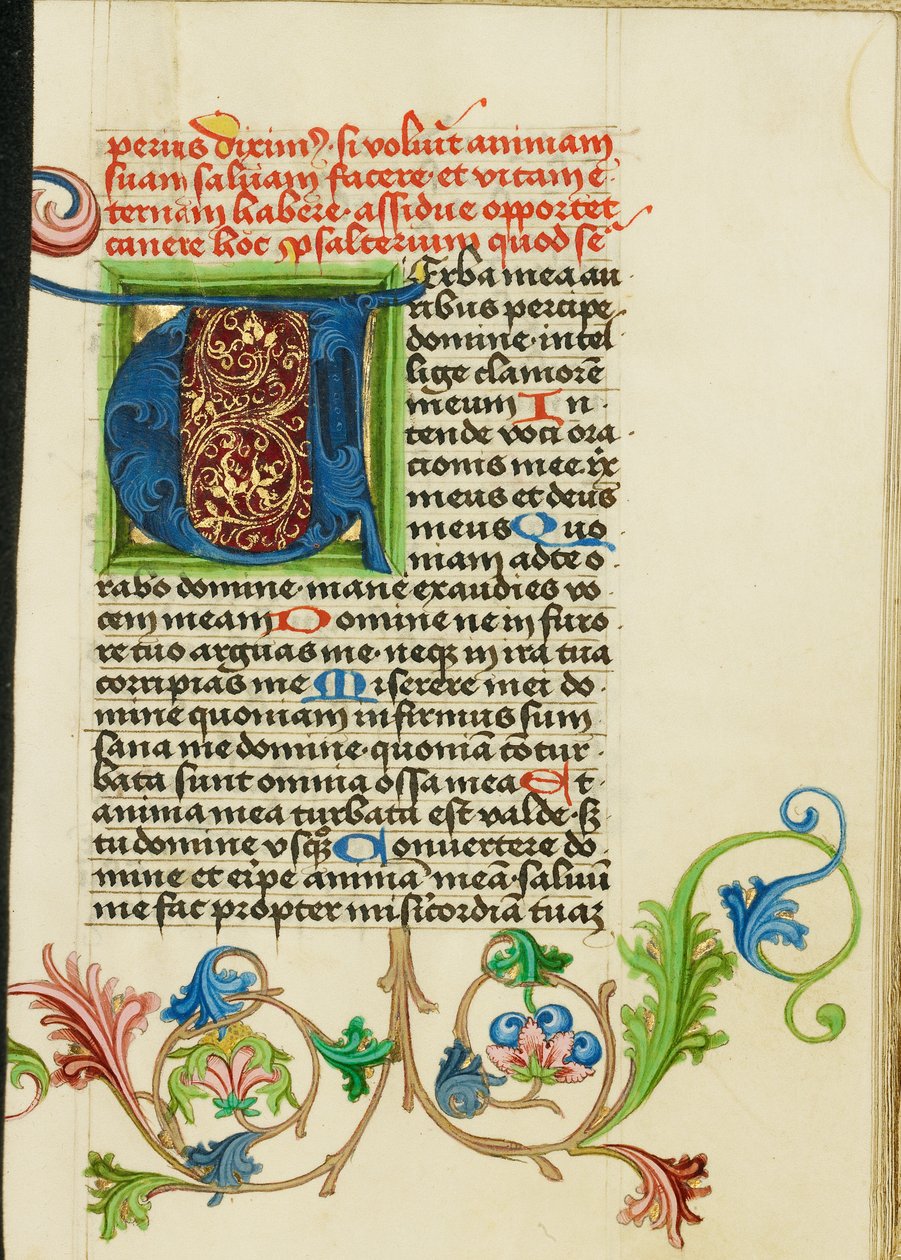 perius diximꝰ· si voluīt animam
suam saluam facere· et vitam e-
ternam habere· assidue opportet
canere hoc psalterium quod seˉ
Erba mea au
ribus percipe
domine· intel
lige clamorē
meum In-
tende voci ora-
cionis mee rex
meus et deus
meus Quo
niam ad te o-
rabo domine· mane exaudies vo-
cem meam Domine ne in furo-
re tuo arguas me· neqꝫ in ira tua
corripias me Miserere mei do-
mine quoniam infirmus sum
sana me domine· quoniā cōtur-
bata sunt omnia ossa mea Et
anima mea turbata est valde· sꝫ
tu domine vsqꝫqͦ Conuertere do-
mine et eripe animā meā· saluū
me fac propter misicordiā tuaꝫ